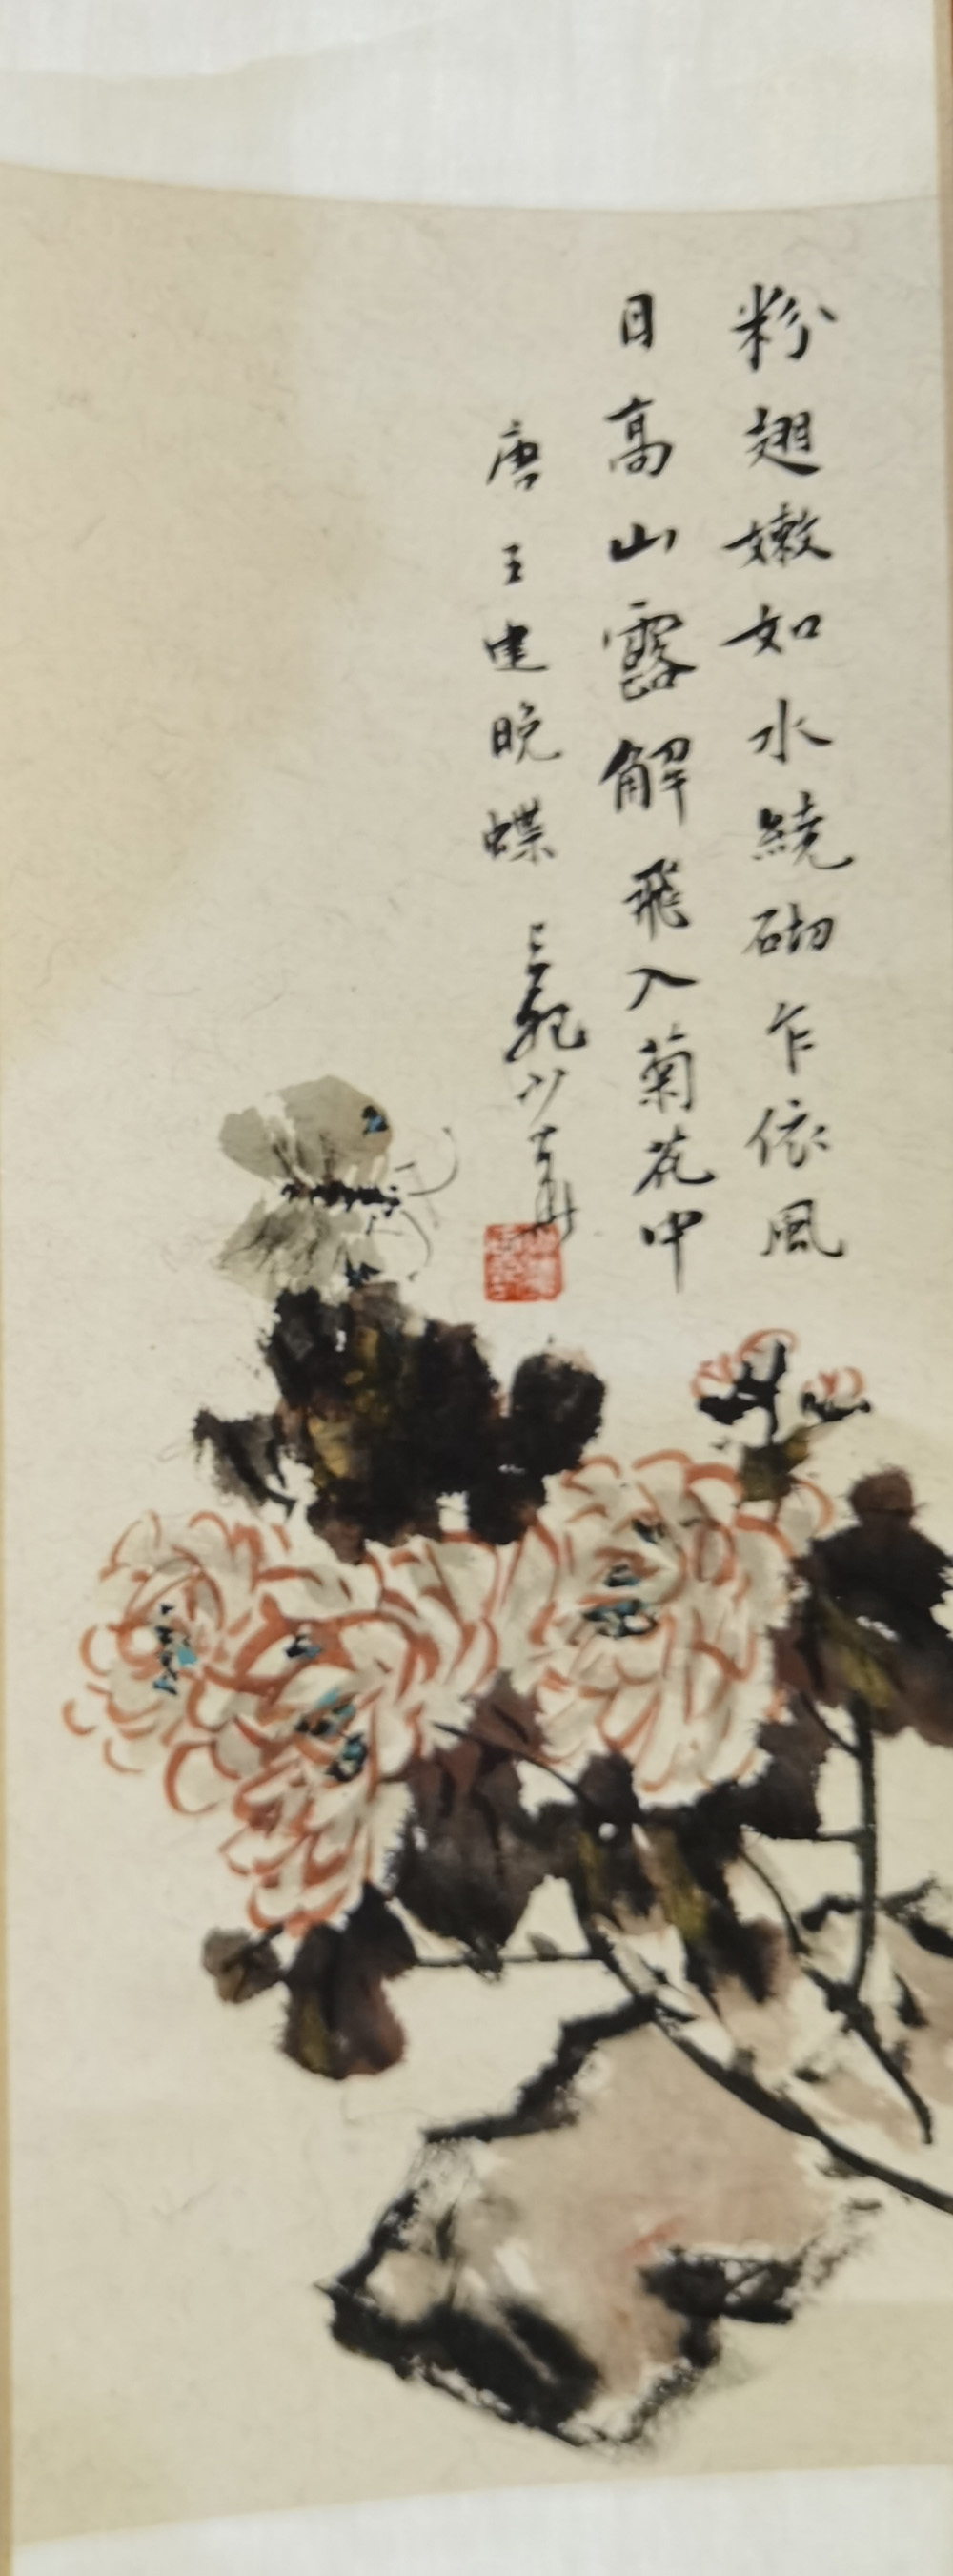 粉翅嫩如水繞砌乍依風
日高山露解飛入菊花中
唐王建晚蝶